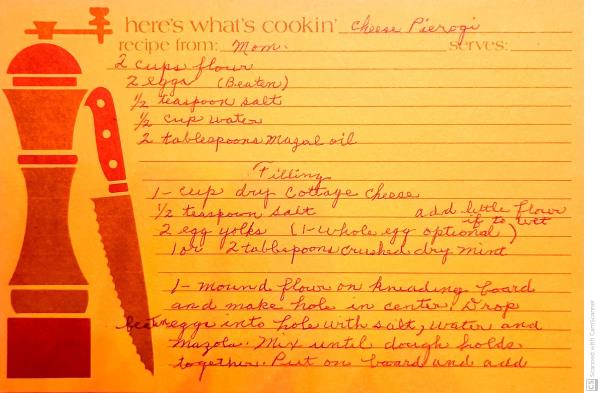 here's what's cookin' Cheese Pierogi
recipe from: Mom. serves:
2 cups flour
2 eggs (Beaten)
1/2 teaspoon salt
1/2 cup water
2 tablespoons Mazal oil
Filling
1- cup dry Cottage Cheese
1/2 teaspoon salt add little flour if to wet
2 egg yolks (1-whole egg optional)
1 or 2 tablespoons crushed dry mint
1- mound flour on kneading board
and make hole in center. Drop
beaten eggs into hole with salt, water and
mazola. Mix until dough holds
together. Put on board and add
CS Scanned with CamScanner